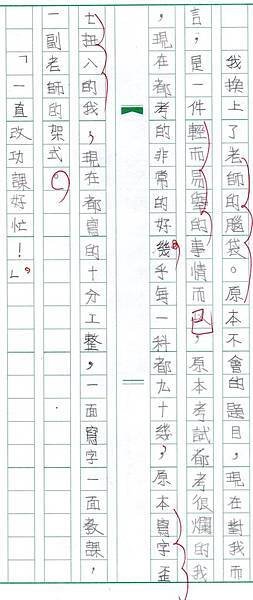 我換上了老師的腦袋。原本不會的題目,現在對我而
言,是一件輕而易舉的事情而已,原本考試都考很爛的我
,現在都考的非常的好,幾乎每一科都九十幾,原本寫字歪
七扭八的我,現在都寫的十分工整,一面寫字一面教課,
一副老師的架式。
「一直改功課好忙!」,